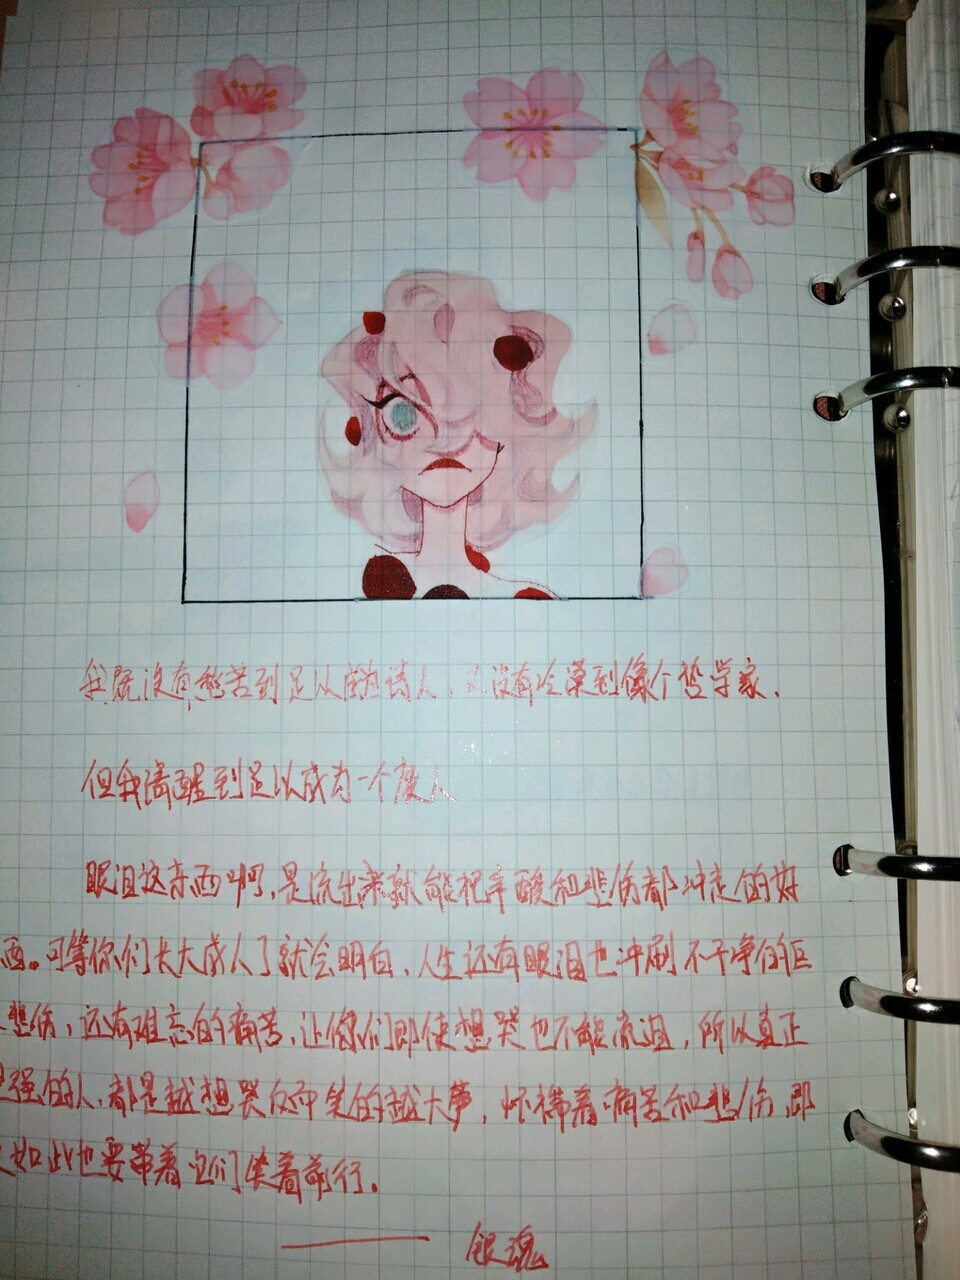 我既没有愁苦到足以成为诗人，又没有冷漠到像个哲学家，
但我清醒到足以成为一个废人
眼泪这东西啊，是流出来就能把辛酸和悲伤都冲走的好
西。可等你们长大成人了就会明白，人生还有眼泪也冲刷不干净的巨
悲伤，还有难忘的痛苦，让你们即使想哭也不能流泪，所以真正
坚强的人，都是越想哭反而笑的越大声，怀揣着痛苦和悲伤，即
如此也要带着它们笑着前行。
—— 银魂